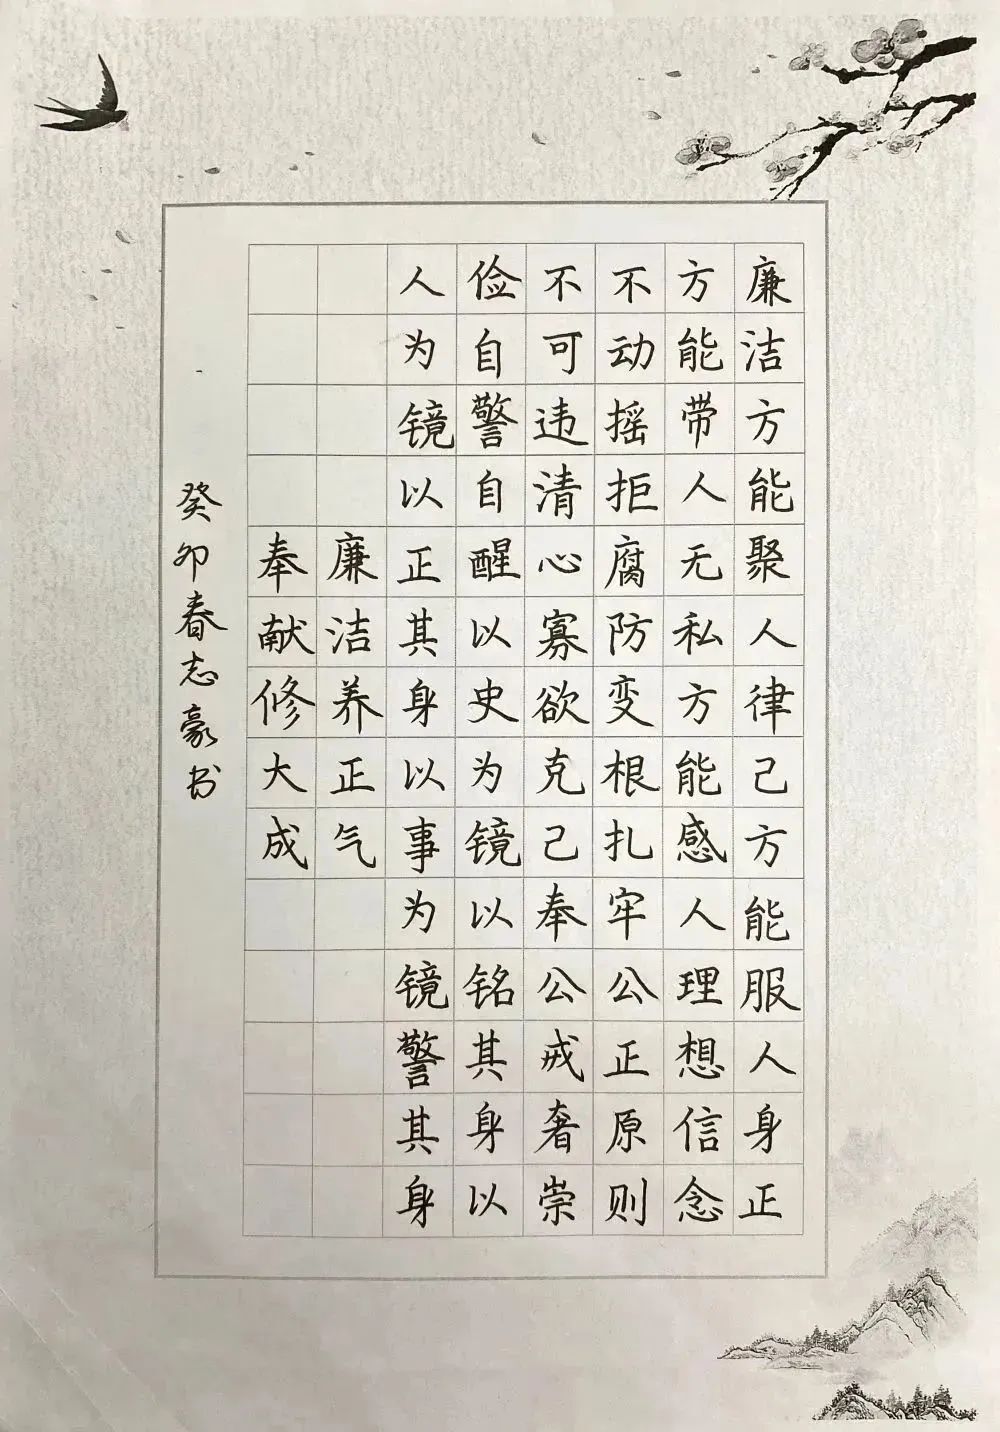 廉洁方能聚人律己方能服人身正
方能带人无私方能感人理想信念
不动摇拒腐防变根扎牢公正原则
不可违清心寡欲克己奉公戒奢崇
俭自警自醒以史为镜以铭其身以
人为镜以正其身以事为镜警其身
廉洁养正气
奉献修大成
癸卯春志豪书